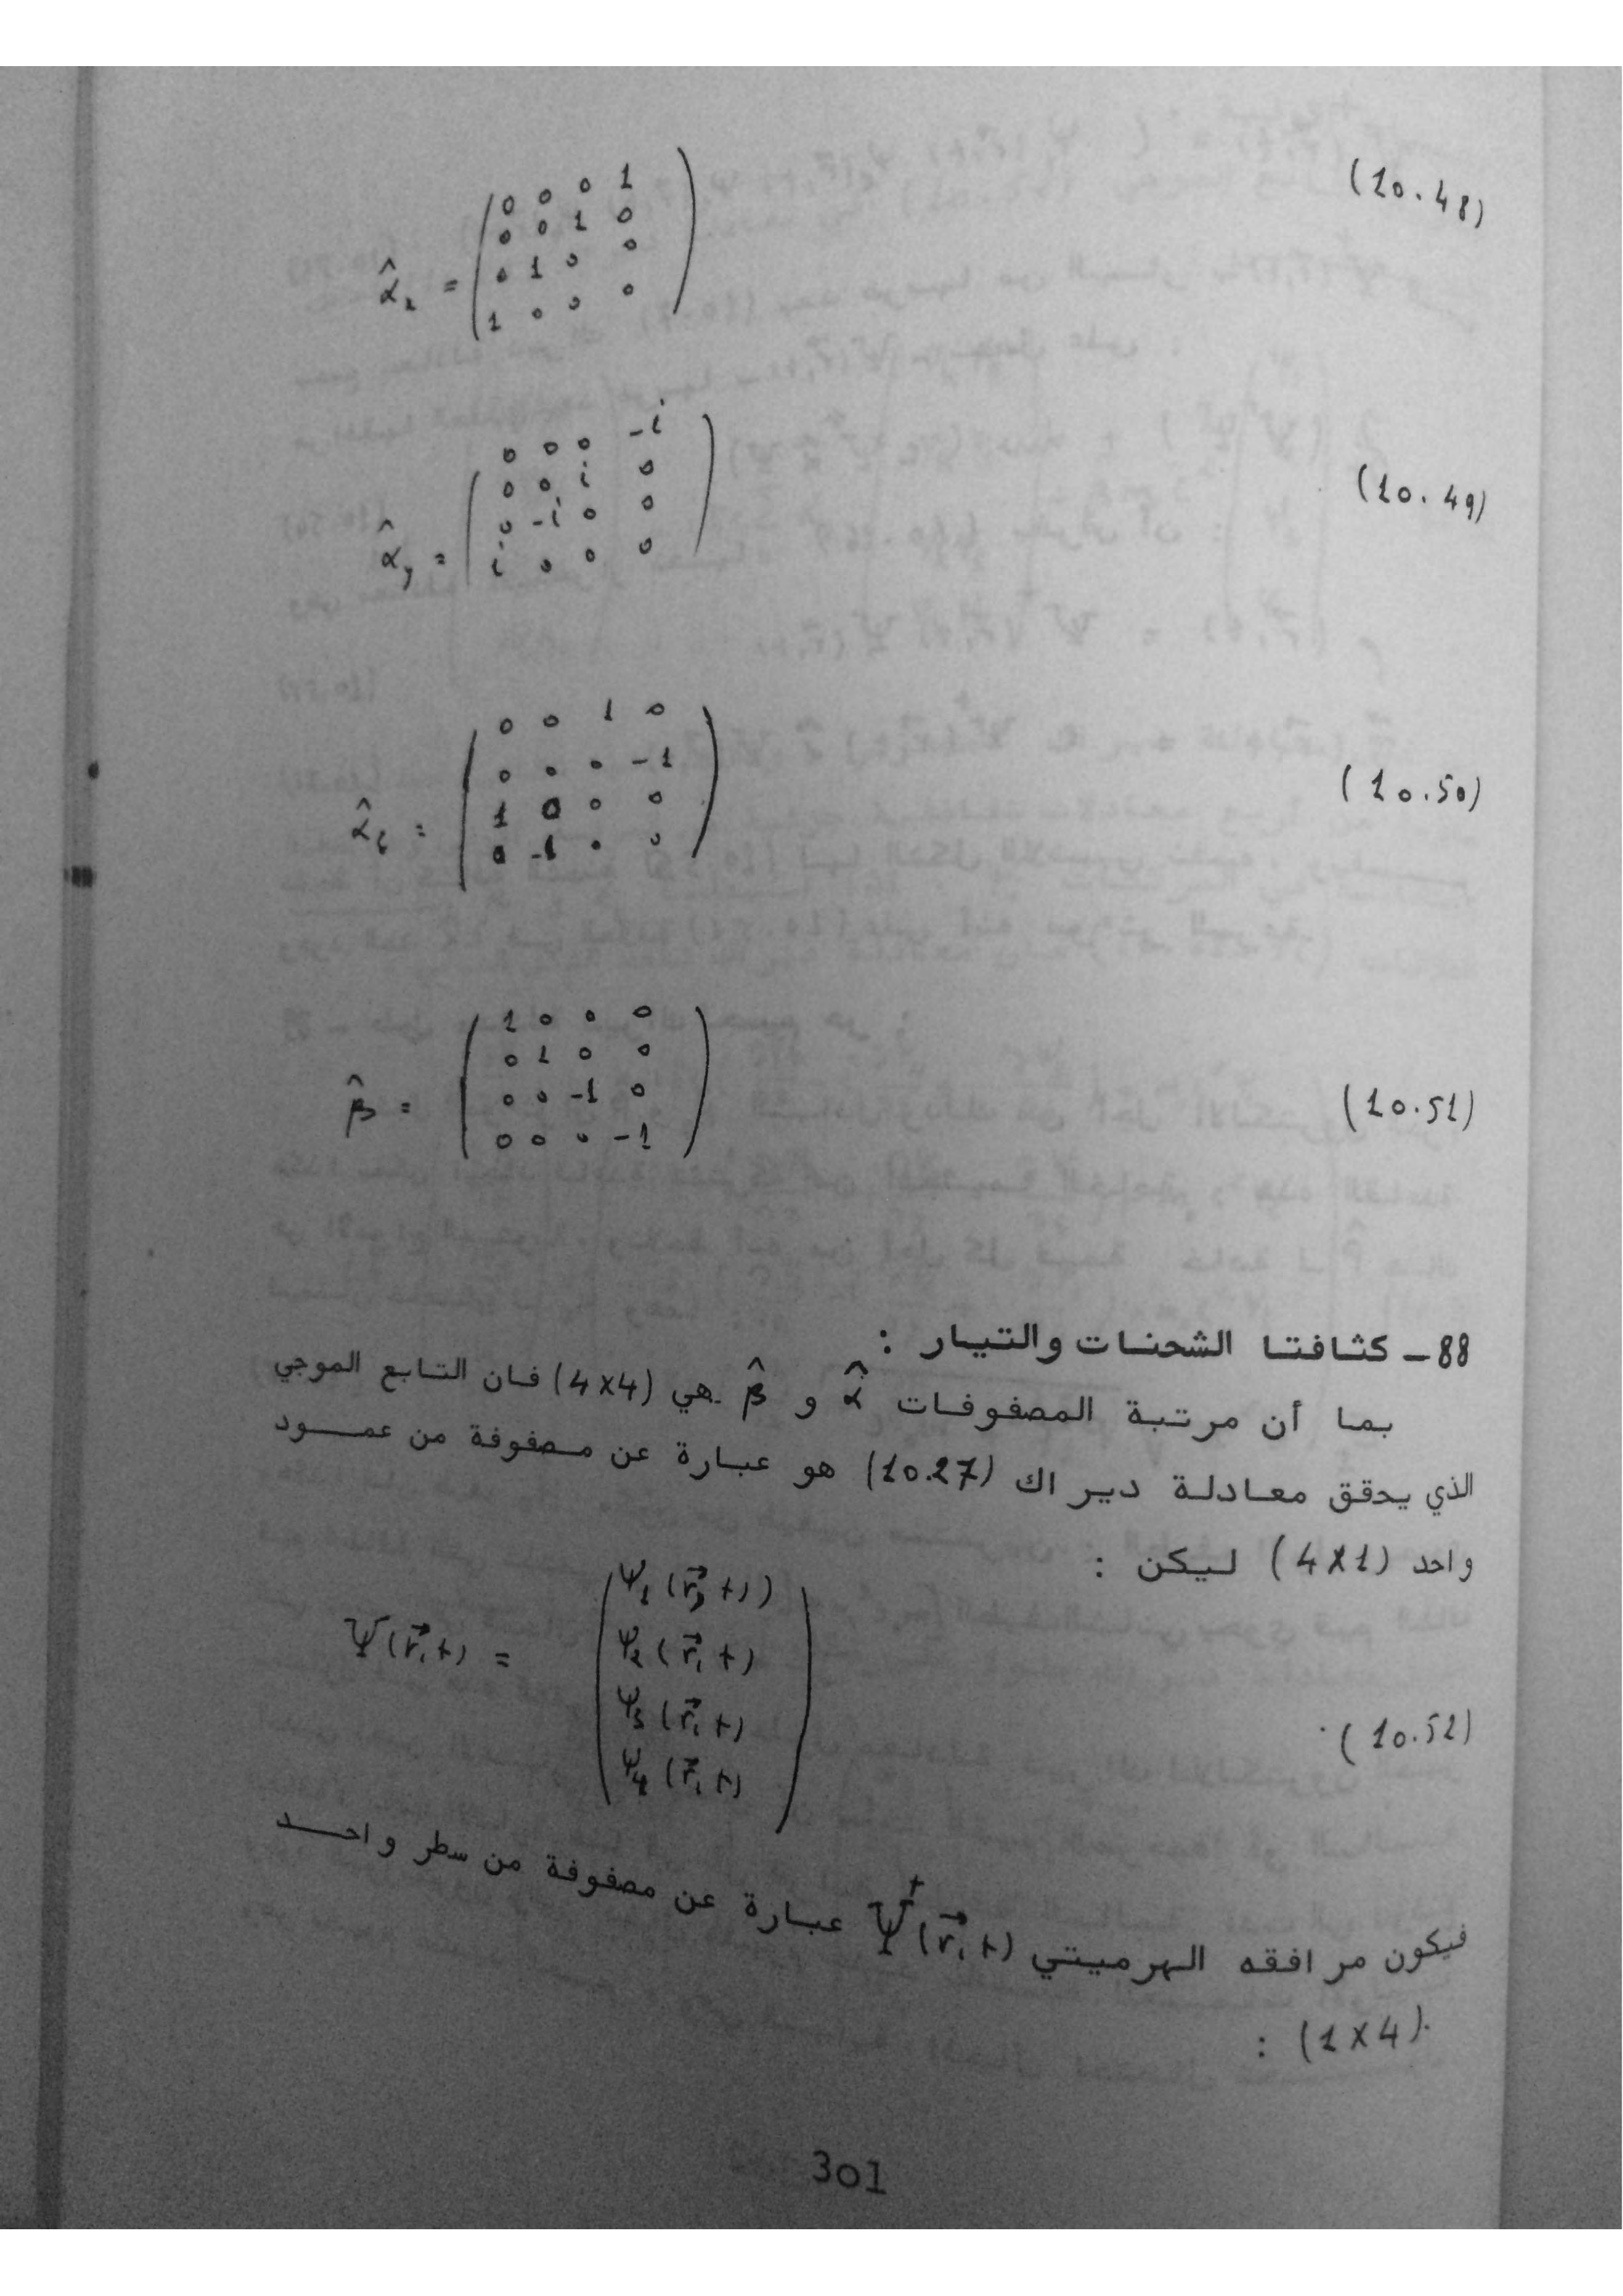 (10.48)
0 0 0 1
0 0 1 0
α̂x = 0 1 0 0
1 0 0 0
(10.49)
0 0 0 -i
0 0 i 0
0 -i 0 0
α̂y = i 0 0 0
(10.50)
0 0 1 0
0 0 0 -1
α̂z = 1 0 0 0
0 -1 0 0
(10.51)
1 0 0 0
0 1 0 0
β̂ = 0 0 -1 0
0 0 0 -1
88 – كثافتا الشحنات والتيار :
بما أن مرتبة المصفوفات α̂ و β̂ هي (4×4) فان التابع الموجي
الذي يحقق معادلة ديراك (10.27) هو عبارة عن مصفوفة من عمود
واحد (4×1) ليكن :
Ψ₁(r⃗, t))
Ψ(r⃗,t) = Ψ₂(r⃗, t)
Ψ₃(r⃗, t)
Ψ₄(r⃗, t)
(10.52)
فيكون مرافقه الهرميتي Ψ⁺(r⃗,t) عبارة عن مصفوفة من سطر واحد
(1×4) :
301